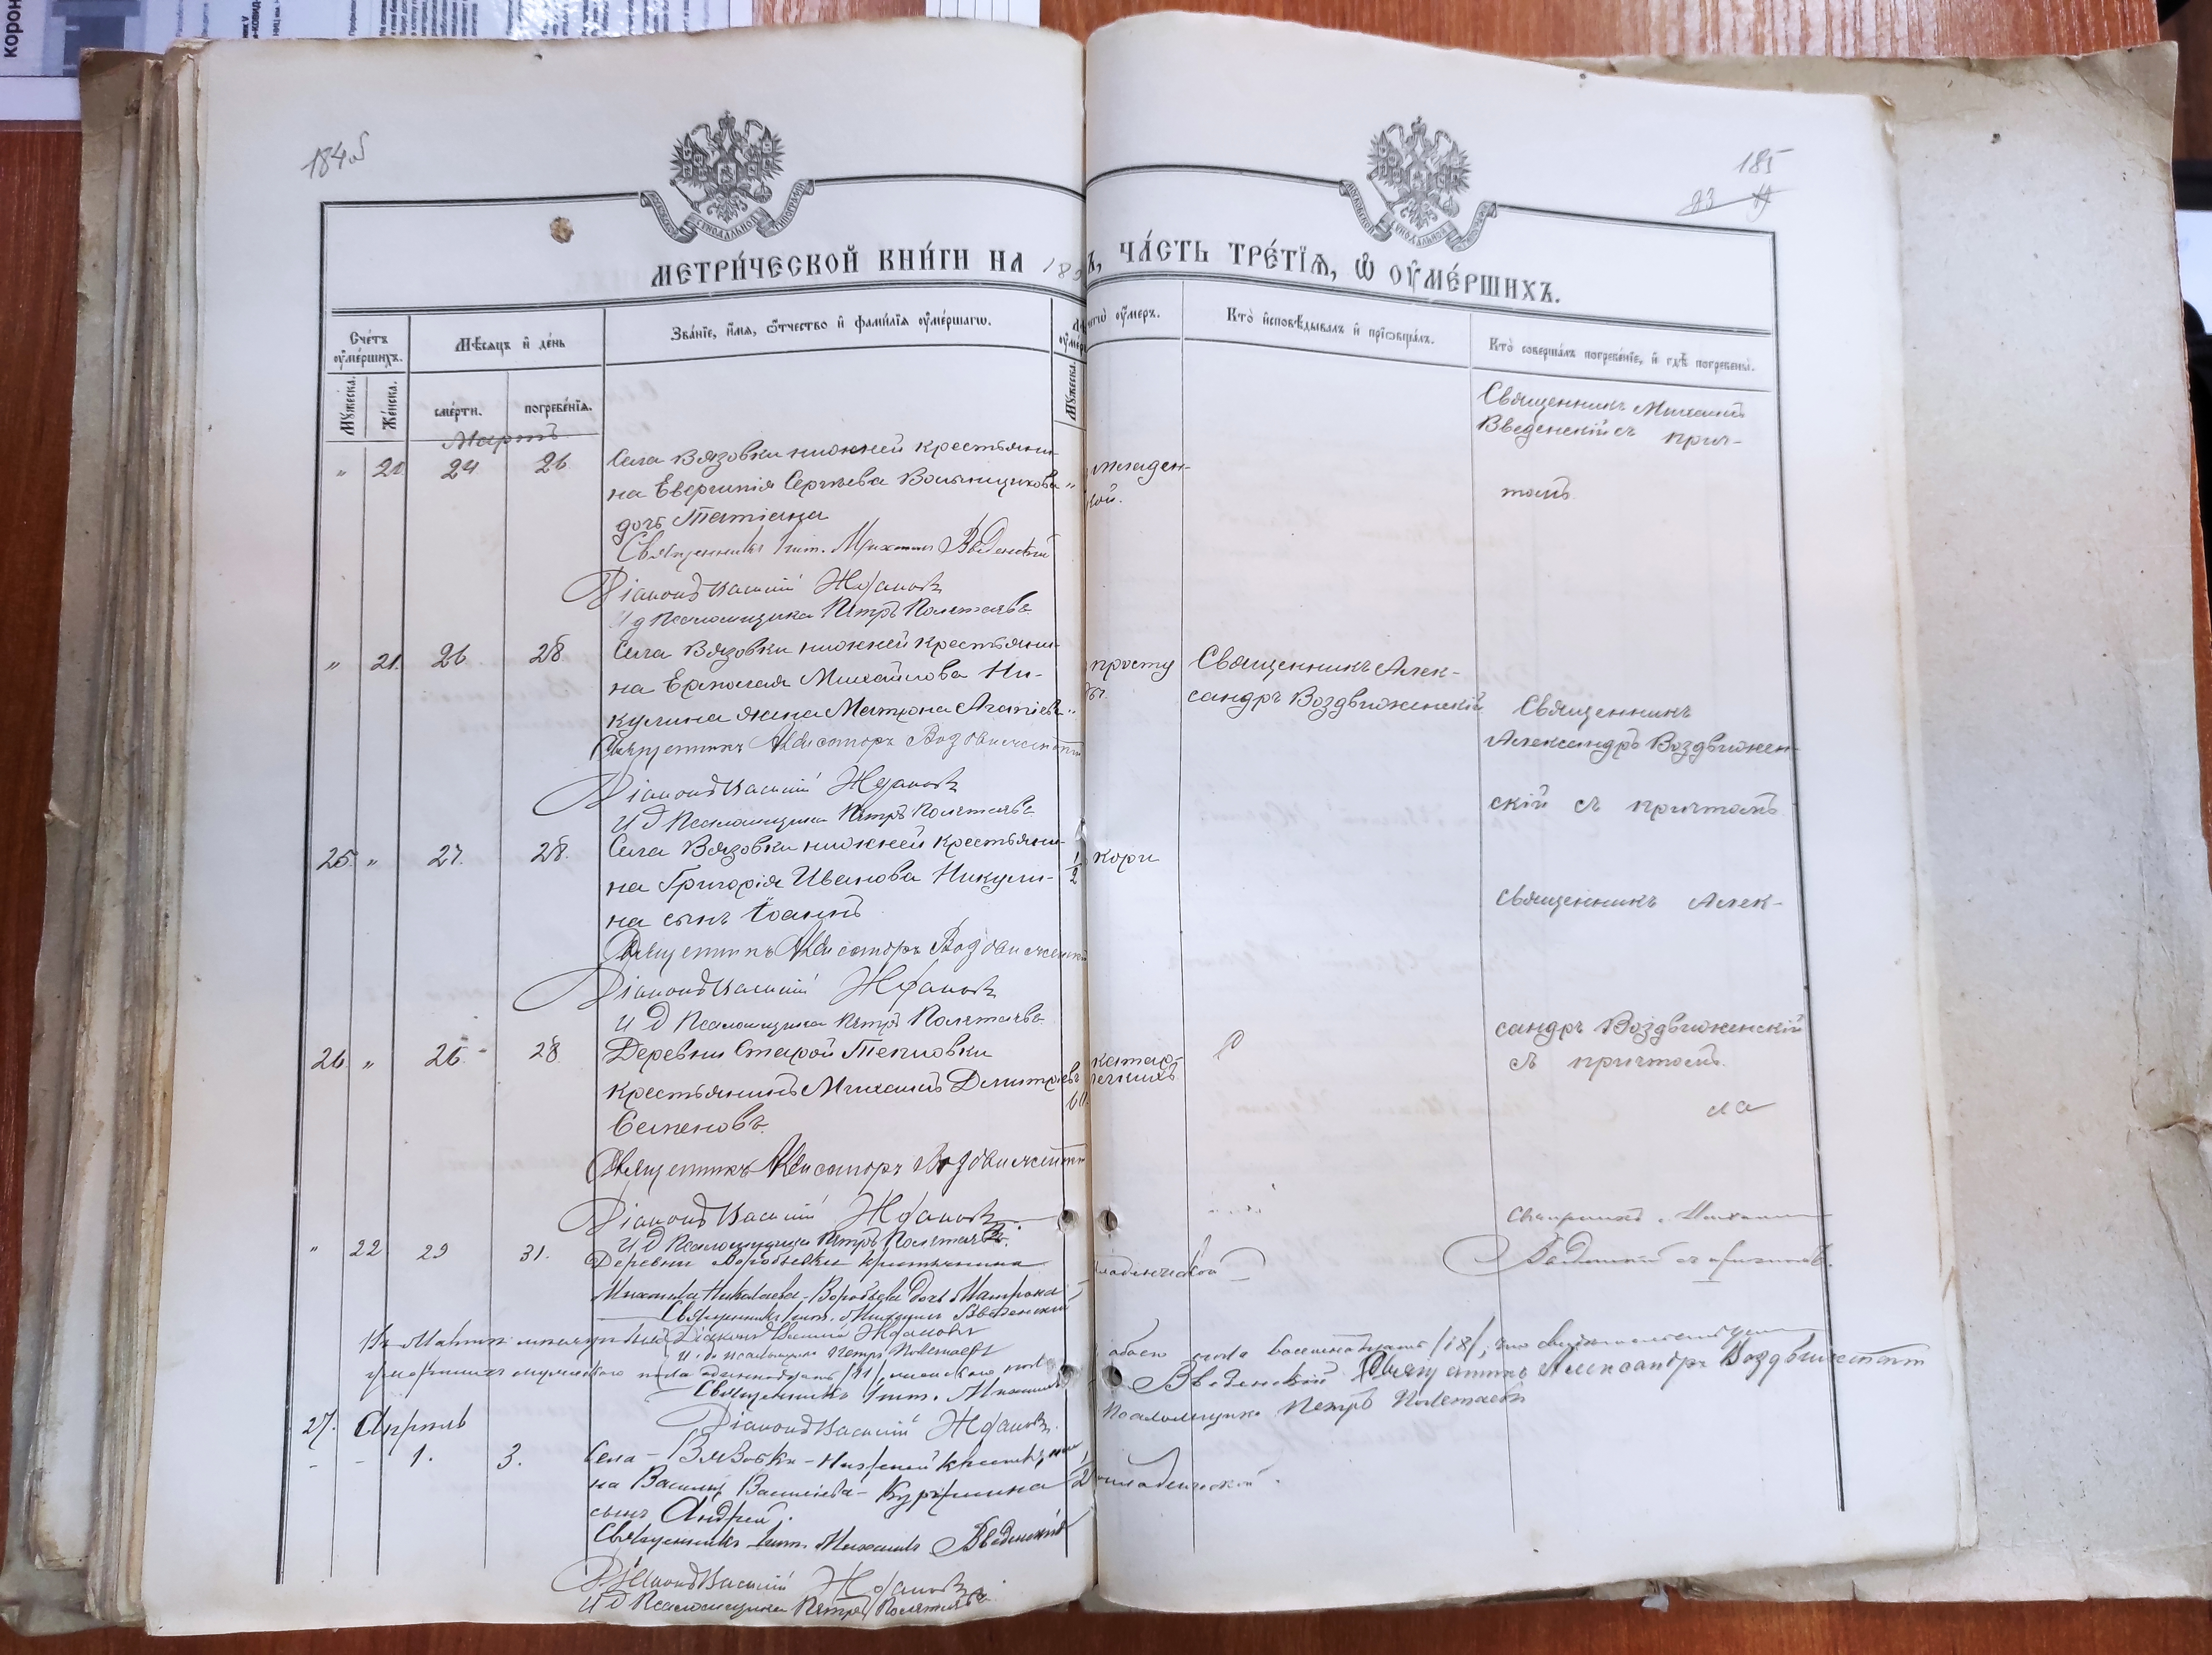 184об
185
МЕТРИ́ЧЕСКОЙ КНИ́ГИ НА 18
, ЧА́СТЬ ТРЕ́ТІѦ, Ѡ ОУ҆МЕ́РШИХЪ.
Сче́тъ оу҆ме́ршихъ.
Мѣ́сѧцъ и҆ де́нь
Зва́нїе, и҆́мѧ, ѻ҆́тчество и҆ фами́лїѧ оу҆ме́ршагѡ.
Мꙋ́жеска.
Же́нска.
сме́рти.
погребе́нїѧ.
Мꙋ́жеска.
чегѡ̀ оу҆́меръ.
Кто̀ и҆сповѣ́дывалъ и҆ прїѡбща́лъ.
Кто̀ соверша́лъ погребе́нїе, и҆ гдѣ̀ погребены̀.
Мартъ
" 20 24 26
Села Вязовки нижней крестьяни-
на Сергѣева
дочь Татіана
Священникъ Михаилъ Введенскій
Діаконъ Василій Ждановъ
И д Псаломщика Петръ Полетаевъ
младен-
ской.
Священникъ Михаилъ
Введенскій съ прич-
томъ
" 21. 26 28
Села Вязовки нижней крестьяни-
на Ермолая Михайлова Ни-
кулина жена Матрона Агапіева "
Священникъ Александръ Воздвиженскій
Діаконъ Василій Ждановъ
И д Псаломщика Петръ Полетаевъ
просту
ды.
Священникъ Алек-
сандръ Воздвиженскій
Священникъ
Александръ Воздвижен-
скій съ причтомъ
25. " 27. 28.
Села Вязовки нижней крестьяни-
на Григорія Иванова Никули-
на сынъ Іоаннъ
1/2
кори
Священникъ Александръ Воздвиженскій
Діаконъ Василій Ждановъ
И д Псаломщика Петръ Полетаевъ
Священникъ Алек-
сандръ Воздвиженскій
съ причтомъ.
26 " 26. 28
Деревни Старой Тепловки
крестьянинъ Михаилъ Димитріевъ
Семеновъ.
60
Священникъ Александръ Воздвиженскій
Діаконъ Василій Ждановъ
И д Псаломщика Петръ Полетаевъ
" 22 29 31.
Деревни Воробьевки крестьянина
Михаила Николаева Воробьева дочь Матрона
Священникъ Михаилъ Введенскій
Діаконъ Василій Ждановъ
И. д. псаломщика Петръ Полетаевъ
Священникъ Михаилъ
Введенскій съ причтомъ.
мужескаго пола одиннадцать /11/, женскаго
обоего пола восемнадцать /18/,
Священникъ Михаилъ
Введенскій Священникъ Александръ Воздвиженскій
Діаконъ Василій Ждановъ
Псаломщика Петръ Полетаевъ
27. Апрѣль
- - 1. 3.
Села Вязовки Нижней крестьяни
на Василія Васильева
сынъ Андрей.
1/2
младенческой.
Священникъ Михаилъ Введенскій
Діаконъ Василій Ждановъ
И д Псаломщика Петръ Полетаевъ